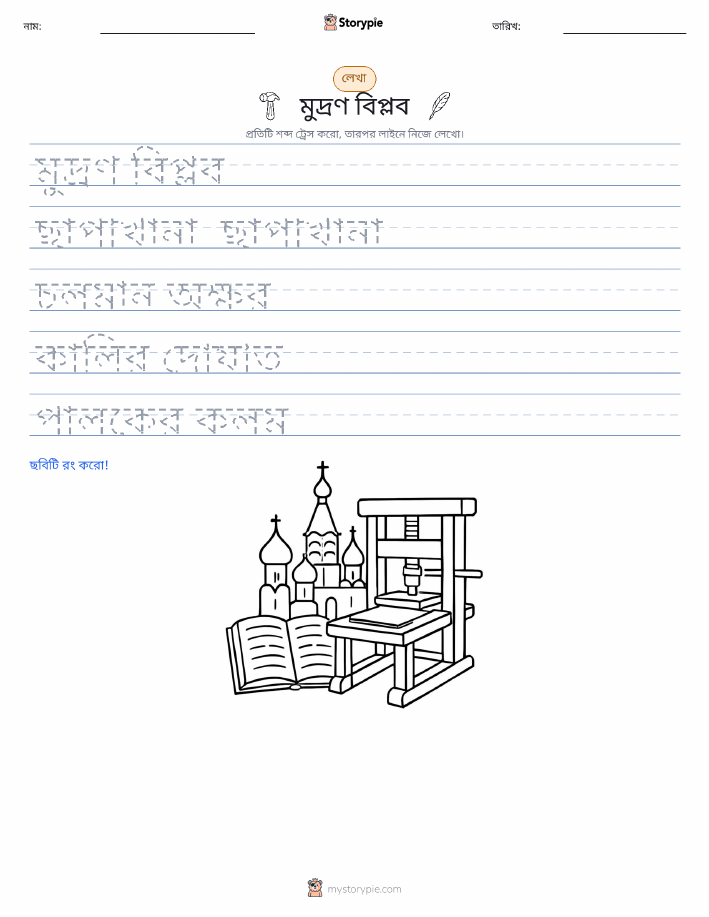 নাম:
Storypie
তারিখ:
লেখা
মুদ্রণ বিপ্লব
প্রতিটি শব্দ ট্রেস করো, তারপর লাইনে নিজে লেখো।
মুদ্রণ বিপ্লব
ছাপাখানা ছাপাখানা
চলমান অক্ষর
কালির দোয়াত
পালকের কলম
ছবিটি রং করো!
mystorypie.com